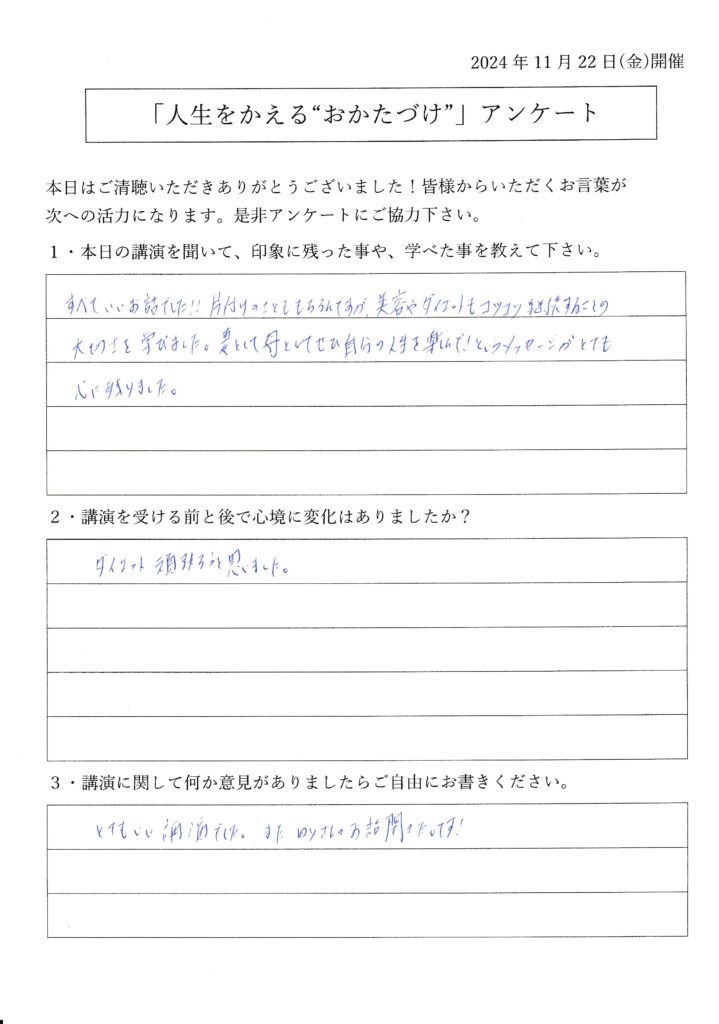 2024年11月22日(金)開催
「人生をかえる“おかたづけ”」アンケート
本日はご清聴いただきありがとうございました！皆様からいただくお言葉が
次への活力になります。是非アンケートにご協力下さい。
１・本日の講演を聞いて、印象に残った事や、学べた事を教えて下さい。
すべていいお話でした!! 片付けのことももちろんですが、美容やダイエットもコツコツ継続することの
大切さを学びました。妻として母としてぜひ自分の人生を楽しんで!というメッセージがとても
心に残りました。
２・講演を受ける前と後で心境に変化はありましたか？
ダイエット頑張ろうと思いました。
３・講演に関して何か意見がありましたらご自由にお書きください。
とてもいい講演でした。また さんのお話聞きたいです!